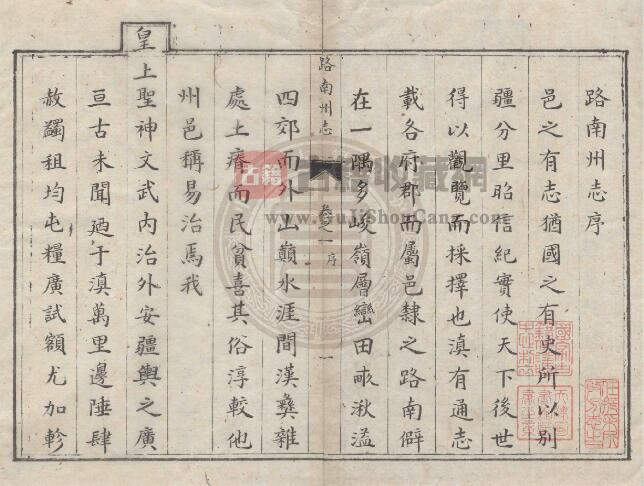 路南州志序
邑之有志猶國之有史所以別
疆分里昭信紀實使天下後世
得以觀覽而採擇也滇有通志
載各府郡而屬邑隸之路南僻
在一隅多峻嶺層巒田畝湫溢
路南州志
卷之一 序
一
四郊而外山巔水涯間漢彝雜
處土瘠而民貧喜其俗淳較他
州邑稱易治焉我
皇上聖神文武內治外安疆輿之廣
亘古未聞廼于滇萬里邊陲肆
赦蠲租均屯糧廣試額尤加軫
古籍
古籍收藏網
www.GuJiShouCang.com